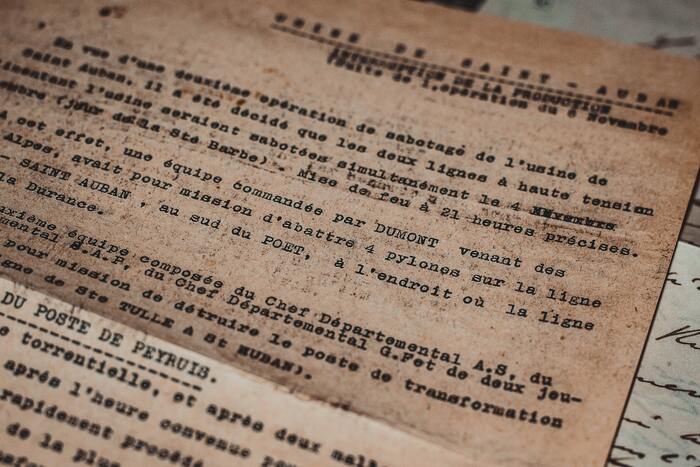 USINE DE SAINT - AUBAN
DE LA PRODUCTION
(Suite de l'opération du 6 Novembre
En vue d'une deuxième opération de sabotage de l'usine de
Saint Auban, il a été décidé que les deux lignes à haute tension
imentant l'usine seraient sabotées simultanément le 4
mbre (jour de la Ste Barbe). Mise de feu à 21 heures précises.
A cet effet, une équipe commandée par DUMONT venant des
Alpes avait pour mission d'abattre 4 pylones sur la ligne
- SAINT AUBAN, au sud du POET, à l'endroit où la ligne
la Durance.
uxième équipe composée du Chef Départemental A.S. du
mental S.A.P, du Chef Départemental G.F et de deux jeu-
pour mission de détruire le poste de transformation
igne de Ste TULLE A St AUBAN).
DU POSTE DE PEYRUIS.
e torrentielle, et après deux
après l'heure convenue
rapidement procéd
de la plus